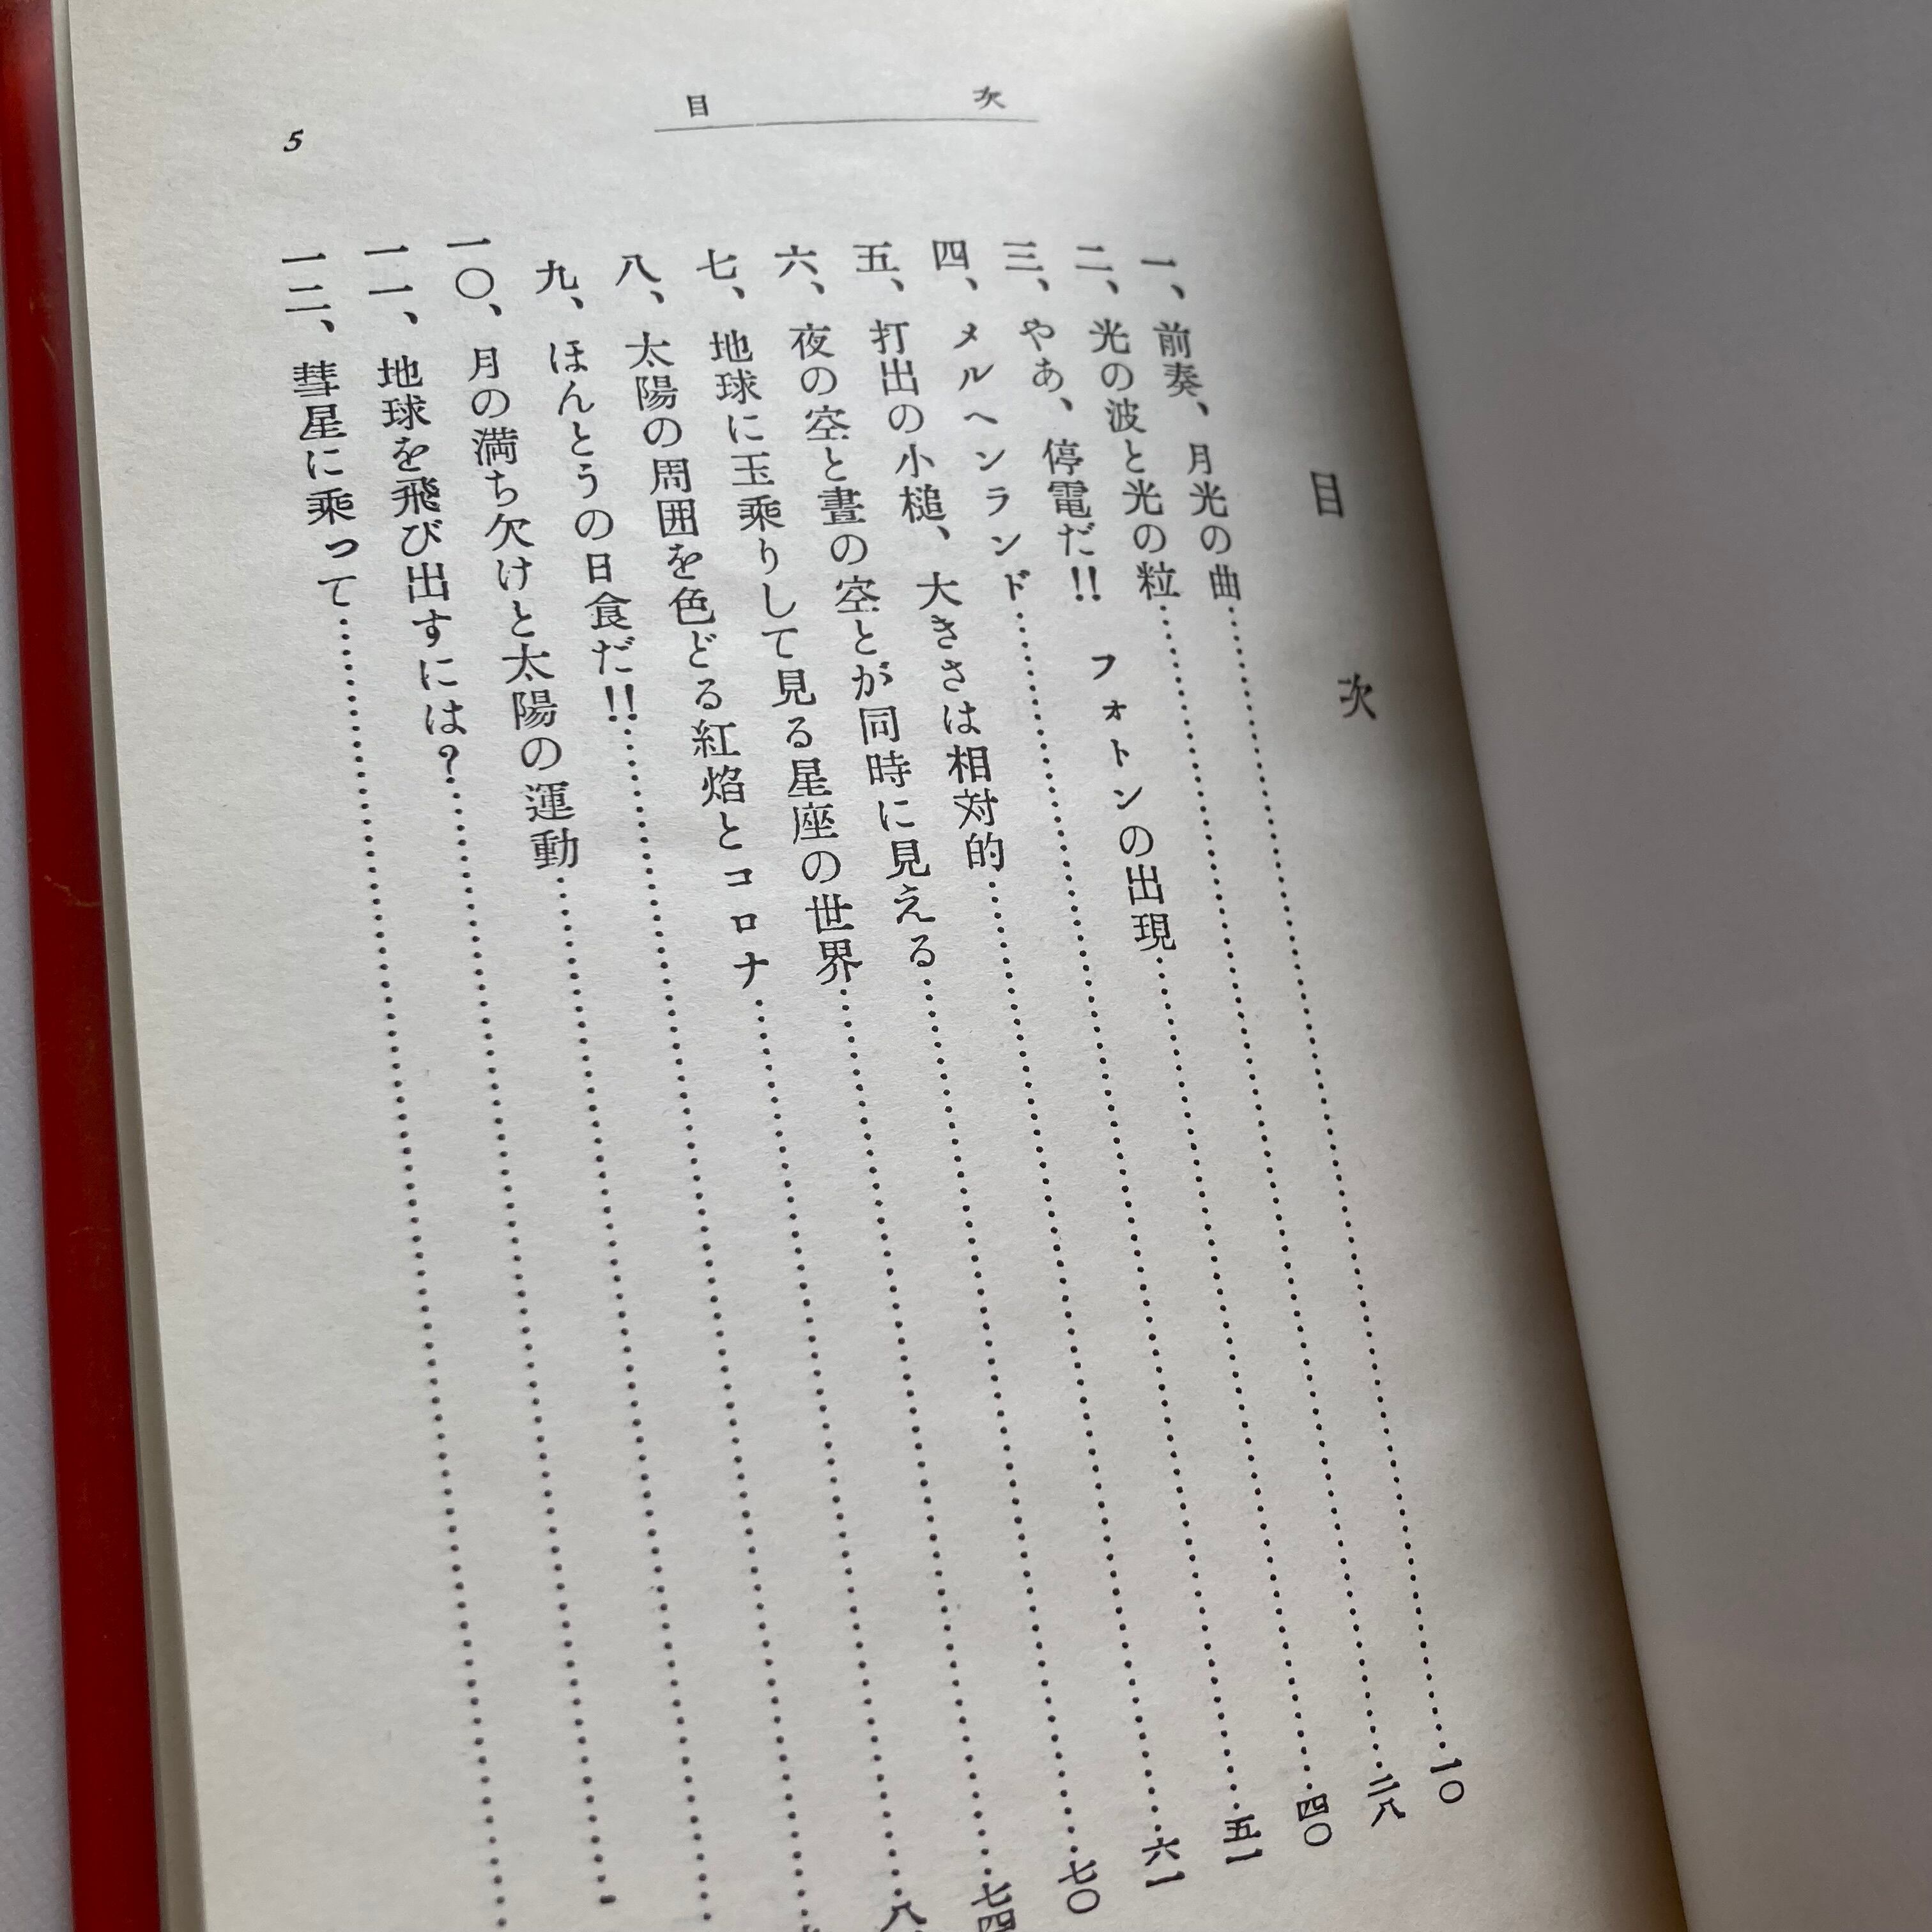 目次
5
目次
一、前奏、月光の曲…………一〇
二、光の波と光の粒…………二八
三、やあ、停電だ!! フォトンの出現…………四〇
四、メルヘンランド…………五一
五、打出の小槌、大きさは相対的…………六一
六、夜の空と晝の空とが同時に見える…………七〇
七、地球に玉乗りして見る星座の世界…………七四
八、太陽の周囲を色どる紅焰とコロナ…………八
九、ほんとうの日食だ!!…………
一〇、月の満ち欠けと太陽の運動…………
一一、地球を飛び出すには?…………
一二、彗星に乗って…………